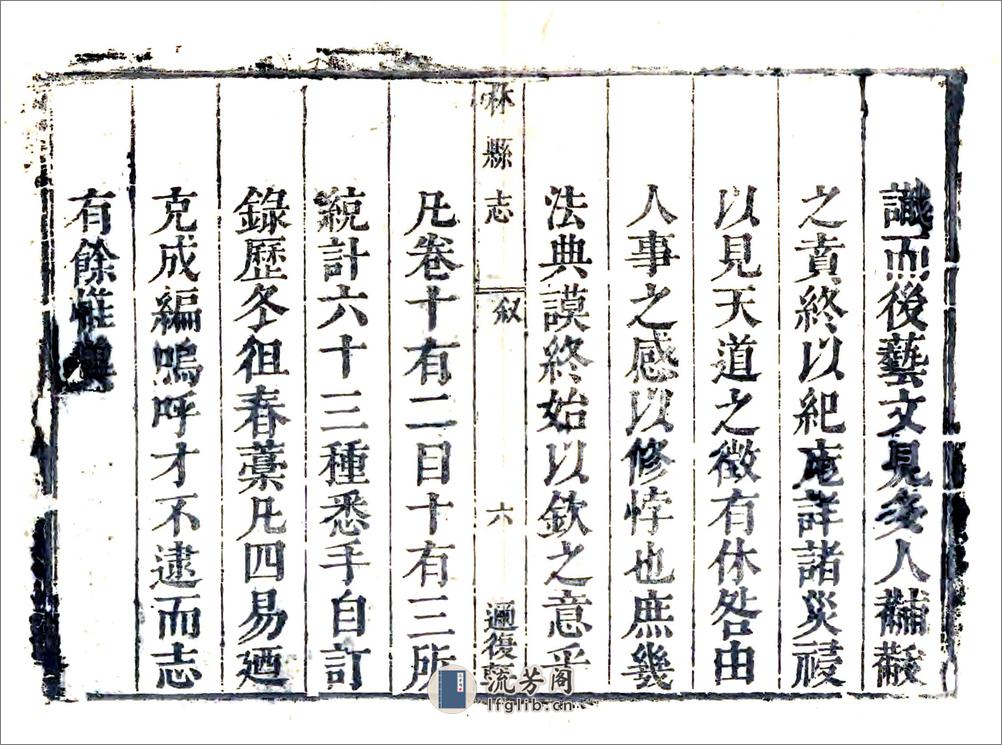 識而後藝文見多人黼黻
之賁終以紀庬詳諸災祲
以見天道之徵有休咎由
人事之感以修悖也庶幾
法典謨終始以欽之意乎
林縣志 叙 六 邇復
凡卷十有二目十有三所
統計六十三種悉手自訂
錄歷冬徂春藁凡四易廼
克成編嗚呼才不逮而志
有餘惟
流芳阁
lfglib.cn